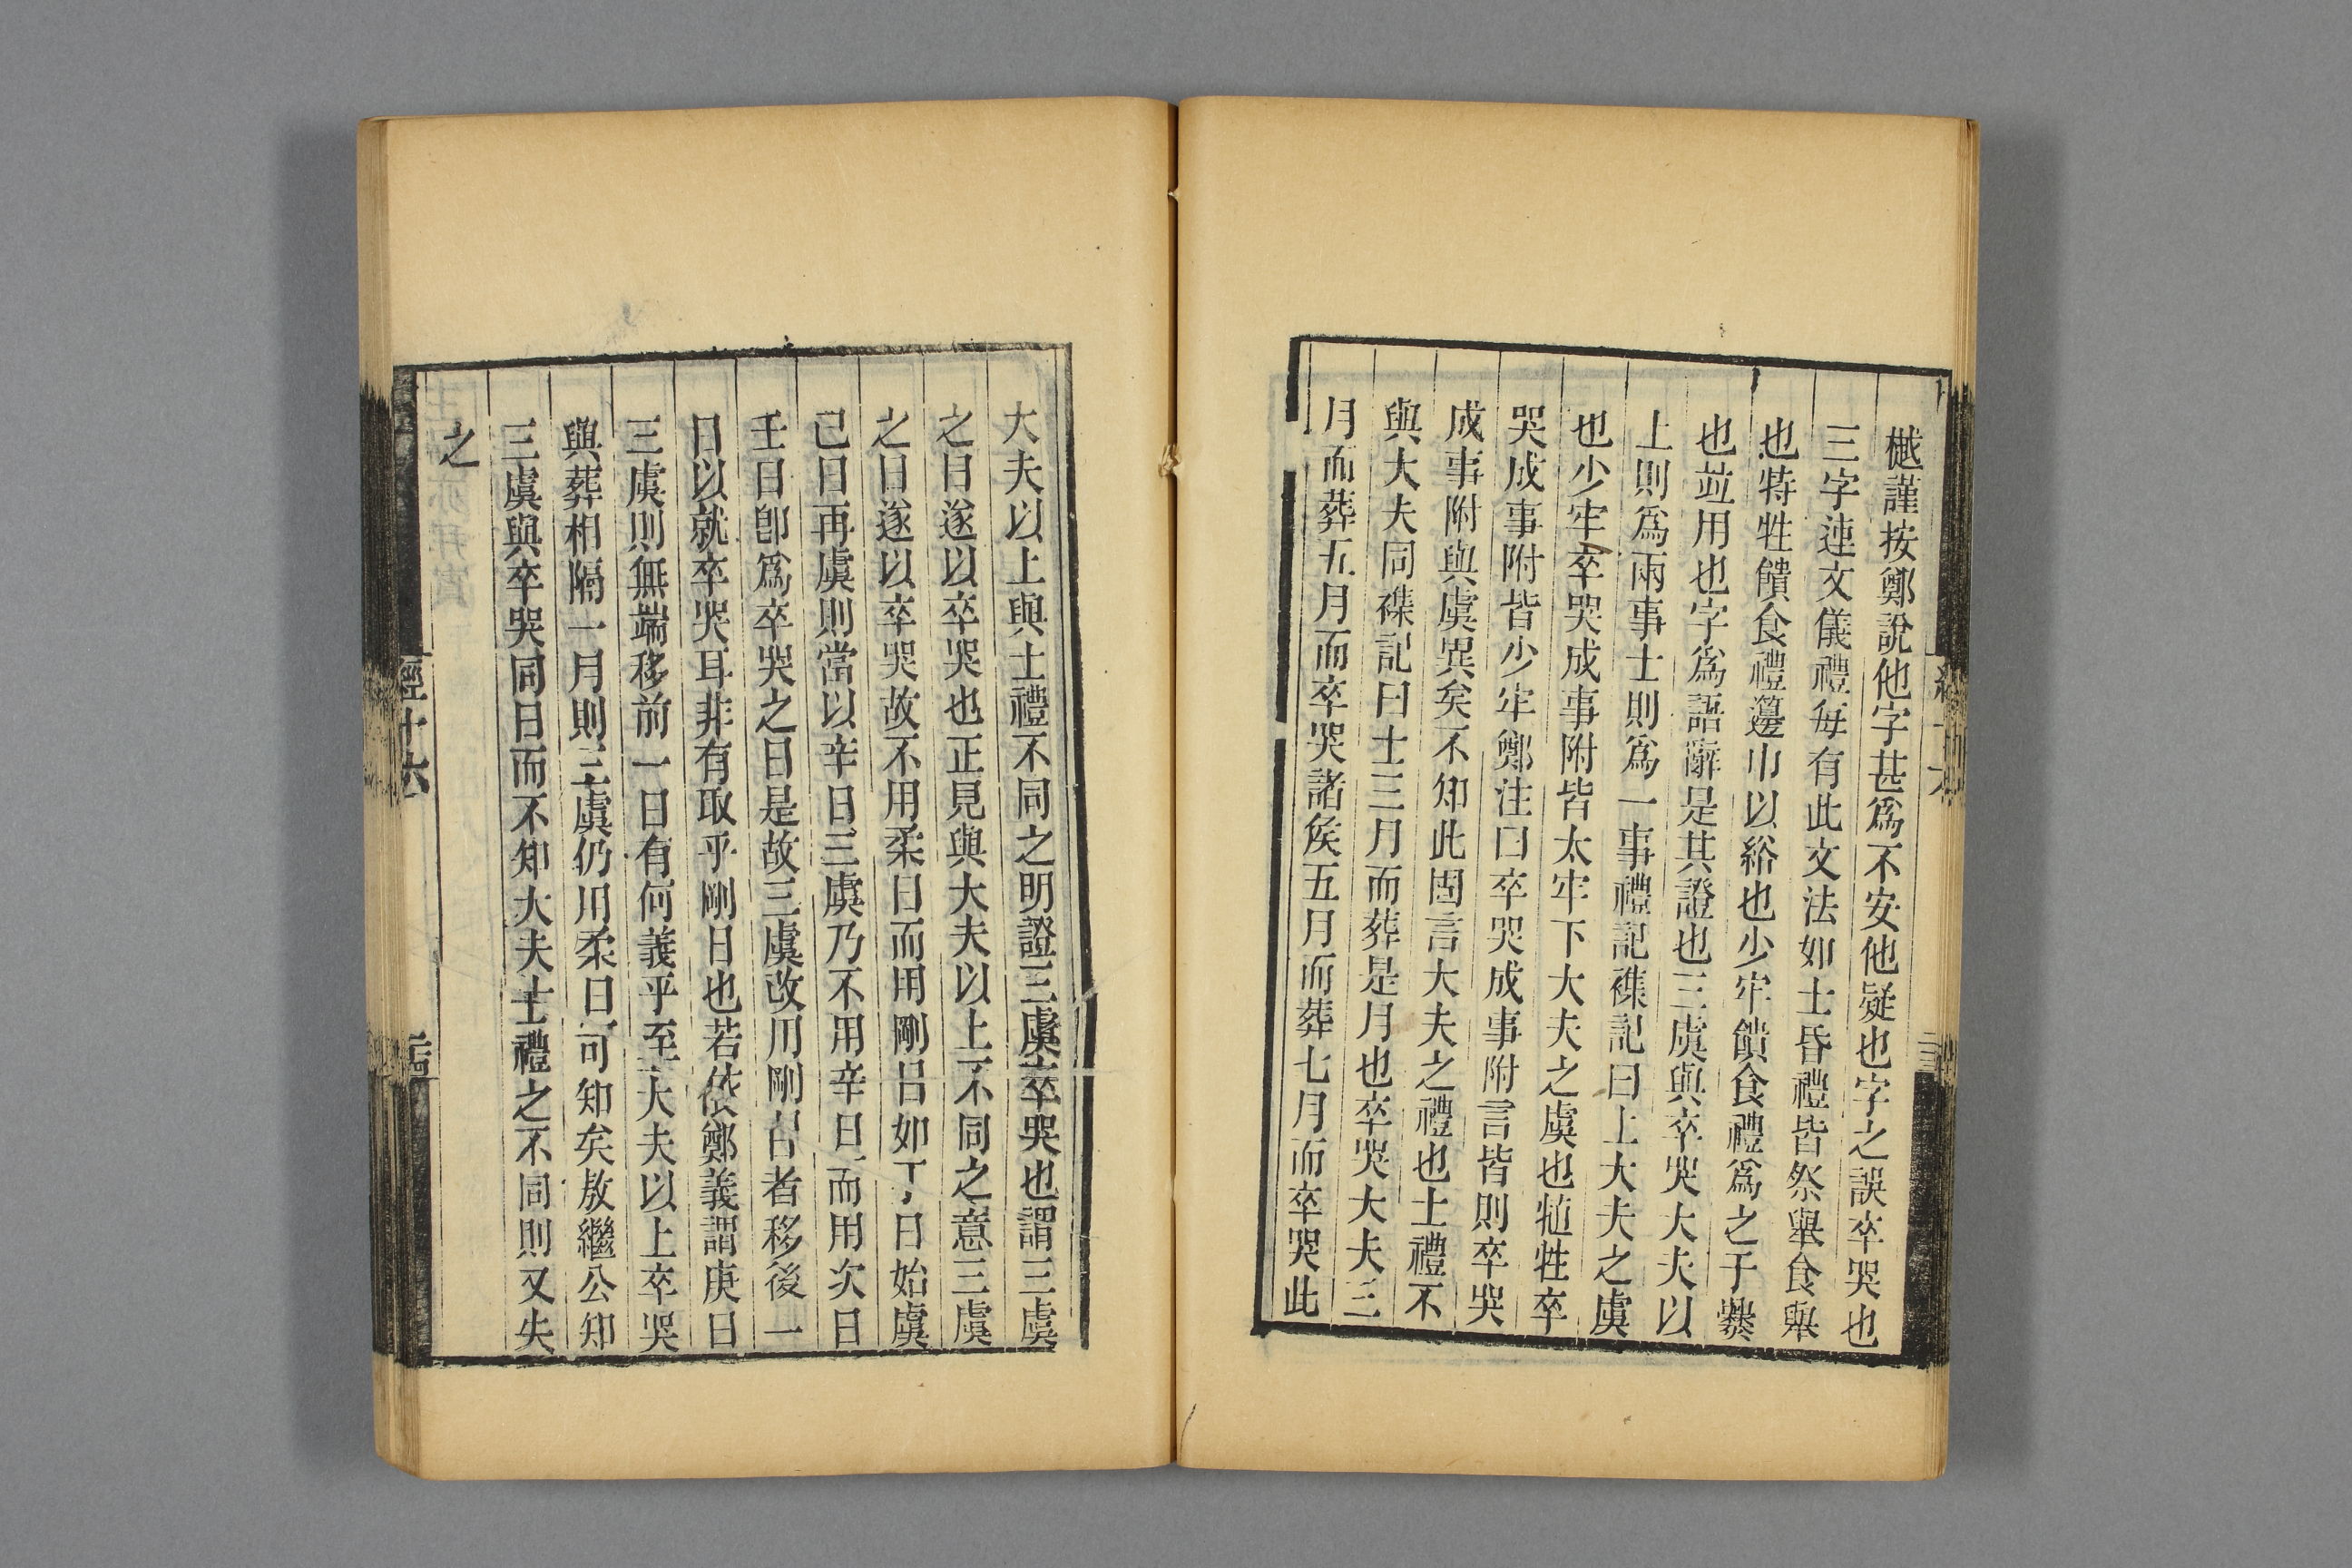 樾謹按鄭說他字甚爲不安他疑也字之誤卒哭也
三字連文儀禮每有此文法如士昏禮皆祭舉食舉
也特牲饋食禮籩巾以綌也少牢饋食禮爲之于爨
也竝用也字爲語辭是其證也三虞與卒哭大夫以
上則爲兩事士則爲一事禮記襍記曰上大夫之虞
也少牢卒哭成事附皆太牢下大夫之虞也犆牲卒
哭成事附皆少牢鄭注曰卒哭成事附言皆則卒哭
成事附與虞異矣不知此固言大夫之禮也士禮不
與大夫同襍記曰士三月而葬是月也卒哭大夫三
月而葬五月而卒哭諸矦五月而葬七月而卒哭此
大夫以上與士禮不同之明證三虞卒哭也謂三虞
之日遂以卒哭也正見與大夫以上不同之意三虞
之日遂以卒哭故不用柔日而用剛日如丁日始虞
己日再虞則當以辛日三虞乃不用辛日而用次日
壬日卽爲卒哭之日是故三虞改用剛日者移後一
日以就卒哭耳非有取乎剛日也若依鄭義謂庚日
三虞則無端移前一日有何義乎至大夫以上卒哭
與葬相隔一月則三虞仍用柔日可知矣敖繼公知
三虞與卒哭同日而不知大夫士禮之不同則又失
之
經十六